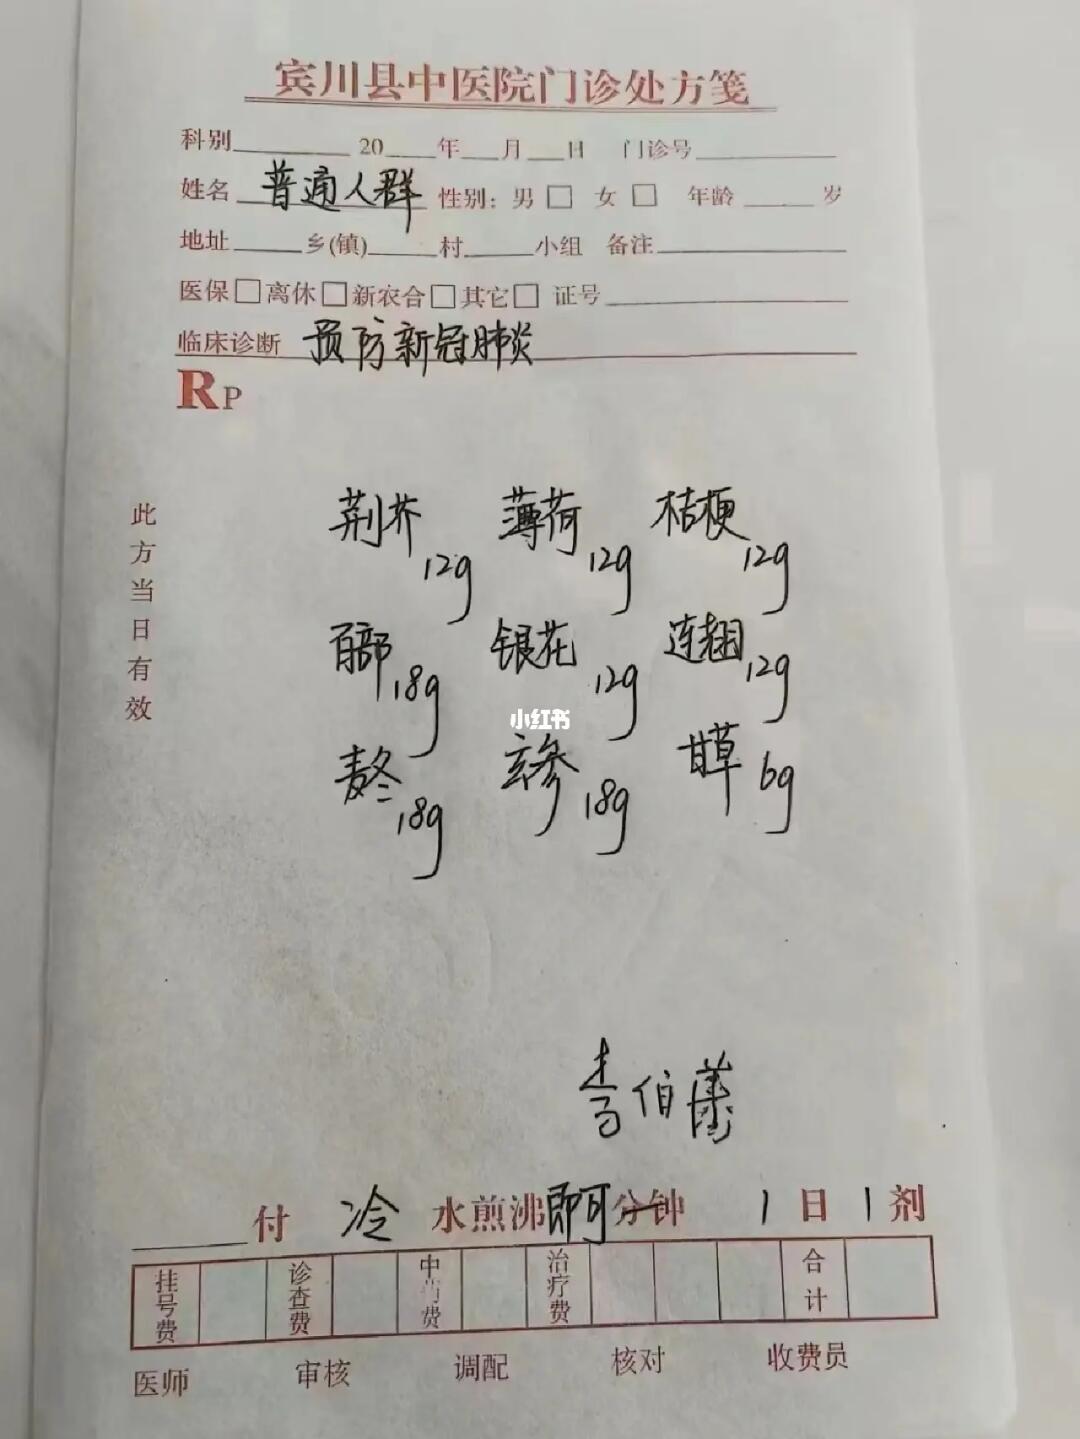 宾川县中医院门诊处方笺
科别 20 年 月 日 门诊号
姓名 普通人群 性别：男 □ 女 □ 年龄 岁
地址 乡(镇) 村 小组 备注
医保□离休□新农合□其它□ 证号
临床诊断 预防新冠肺炎
RP
此方当日有效
荆芥12g 薄荷12g 桔梗12g
百部18g 银花12g 连翘12g
小红书
麦冬18g 玄参18g 甘草6g
李伯藩
付 冷 水煎沸即可分钟 1日1剂
挂号费 诊查费 中药费 治疗费 合计
医师 审核 调配 核对 收费员